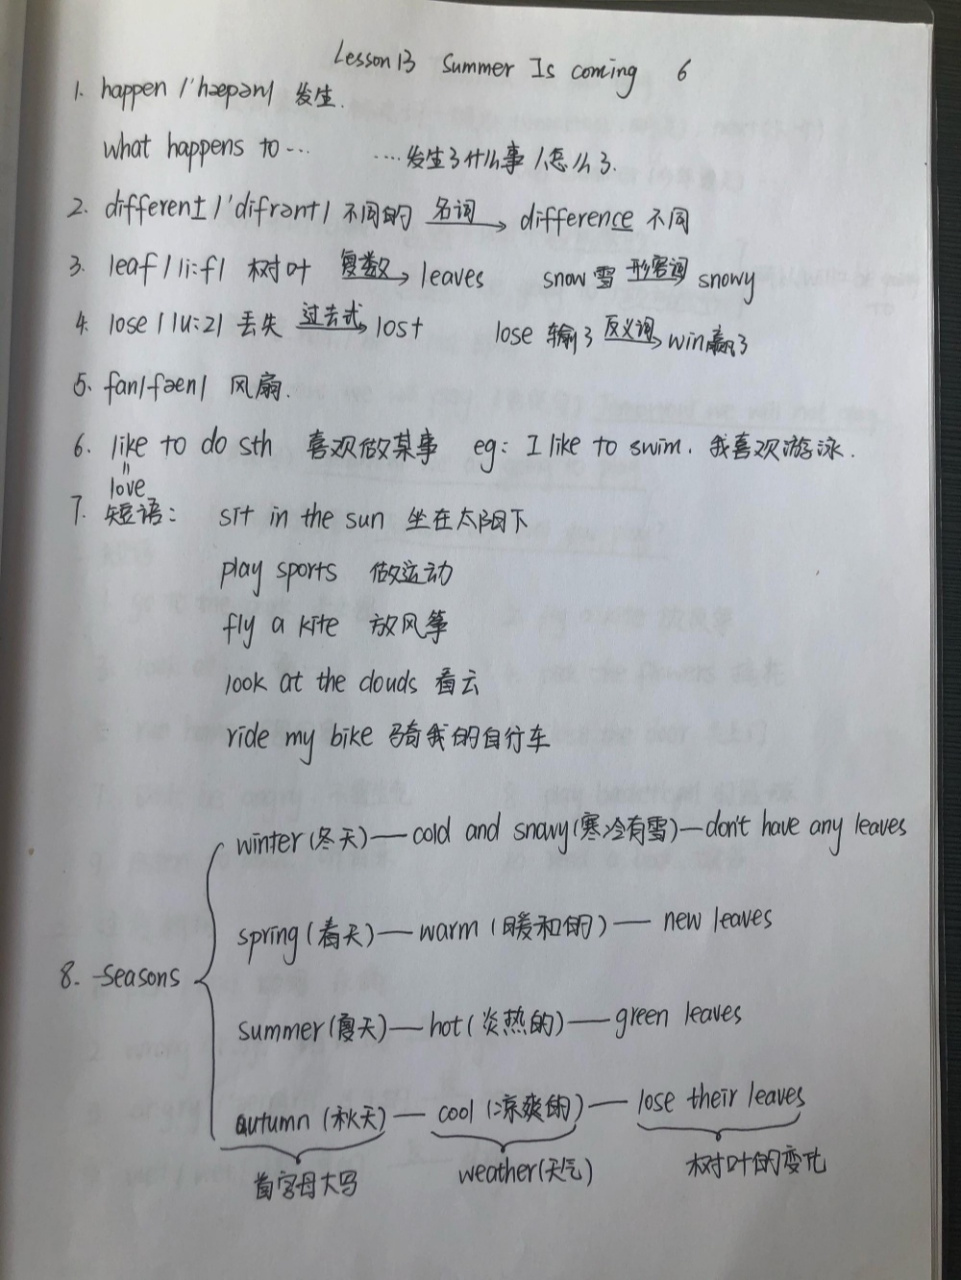 Lesson 13 Summer Is coming 6
1. happen /'hæpən/ 发生.
what happens to… …发生了什么事/怎么了.
2. different /'difrənt/ 不同的 名词 difference 不同
3. leaf /li:f/ 树叶 复数 leaves snow 雪 形容词 snowy
4. lose /lu:z/ 丢失 过去式 lost lose 输了 反义词 win 赢了
5. fan /fæn/ 风扇.
6. like to do sth 喜欢做某事 eg: I like to swim. 我喜欢游泳.
=
love
7. 短语: sit in the sun 坐在太阳下
play sports 做运动
fly a kite 放风筝
look at the clouds 看云
ride my bike 骑我的自行车
winter (冬天) — cold and snowy (寒冷有雪) — don't have any leaves
spring (春天) — warm (暖和的) — new leaves
8. seasons
summer (夏天) — hot (炎热的) — green leaves
autumn (秋天) — cool (凉爽的) — lose their leaves
首字母大写 weather (天气) 树叶的变化